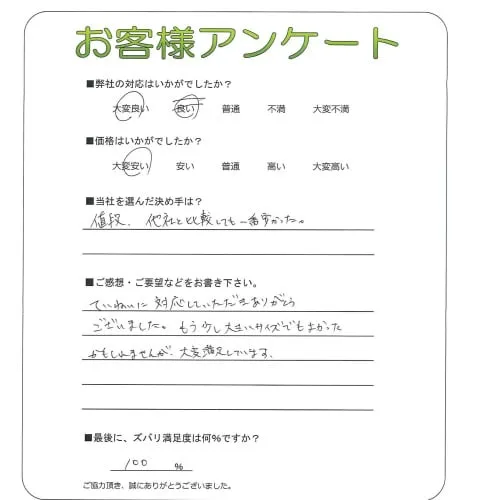 お客様アンケート
■弊社の対応はいかがでしたか？
大変良い 良い 普通 不満 大変不満
■価格はいかがでしたか？
大変安い 安い 普通 高い 大変高い
■当社を選んだ決め手は？
値段、他社と比較しても一番安かった。
■ご感想・ご要望などをお書き下さい。
ていねいに対応していただきありがとう
ございました。もう少し大きいサイズでもよかった
かもしれませんが、大変満足しています。
■最後に、ズバリ満足度は何%ですか？
100 %
ご協力頂き、誠にありがとうございました。